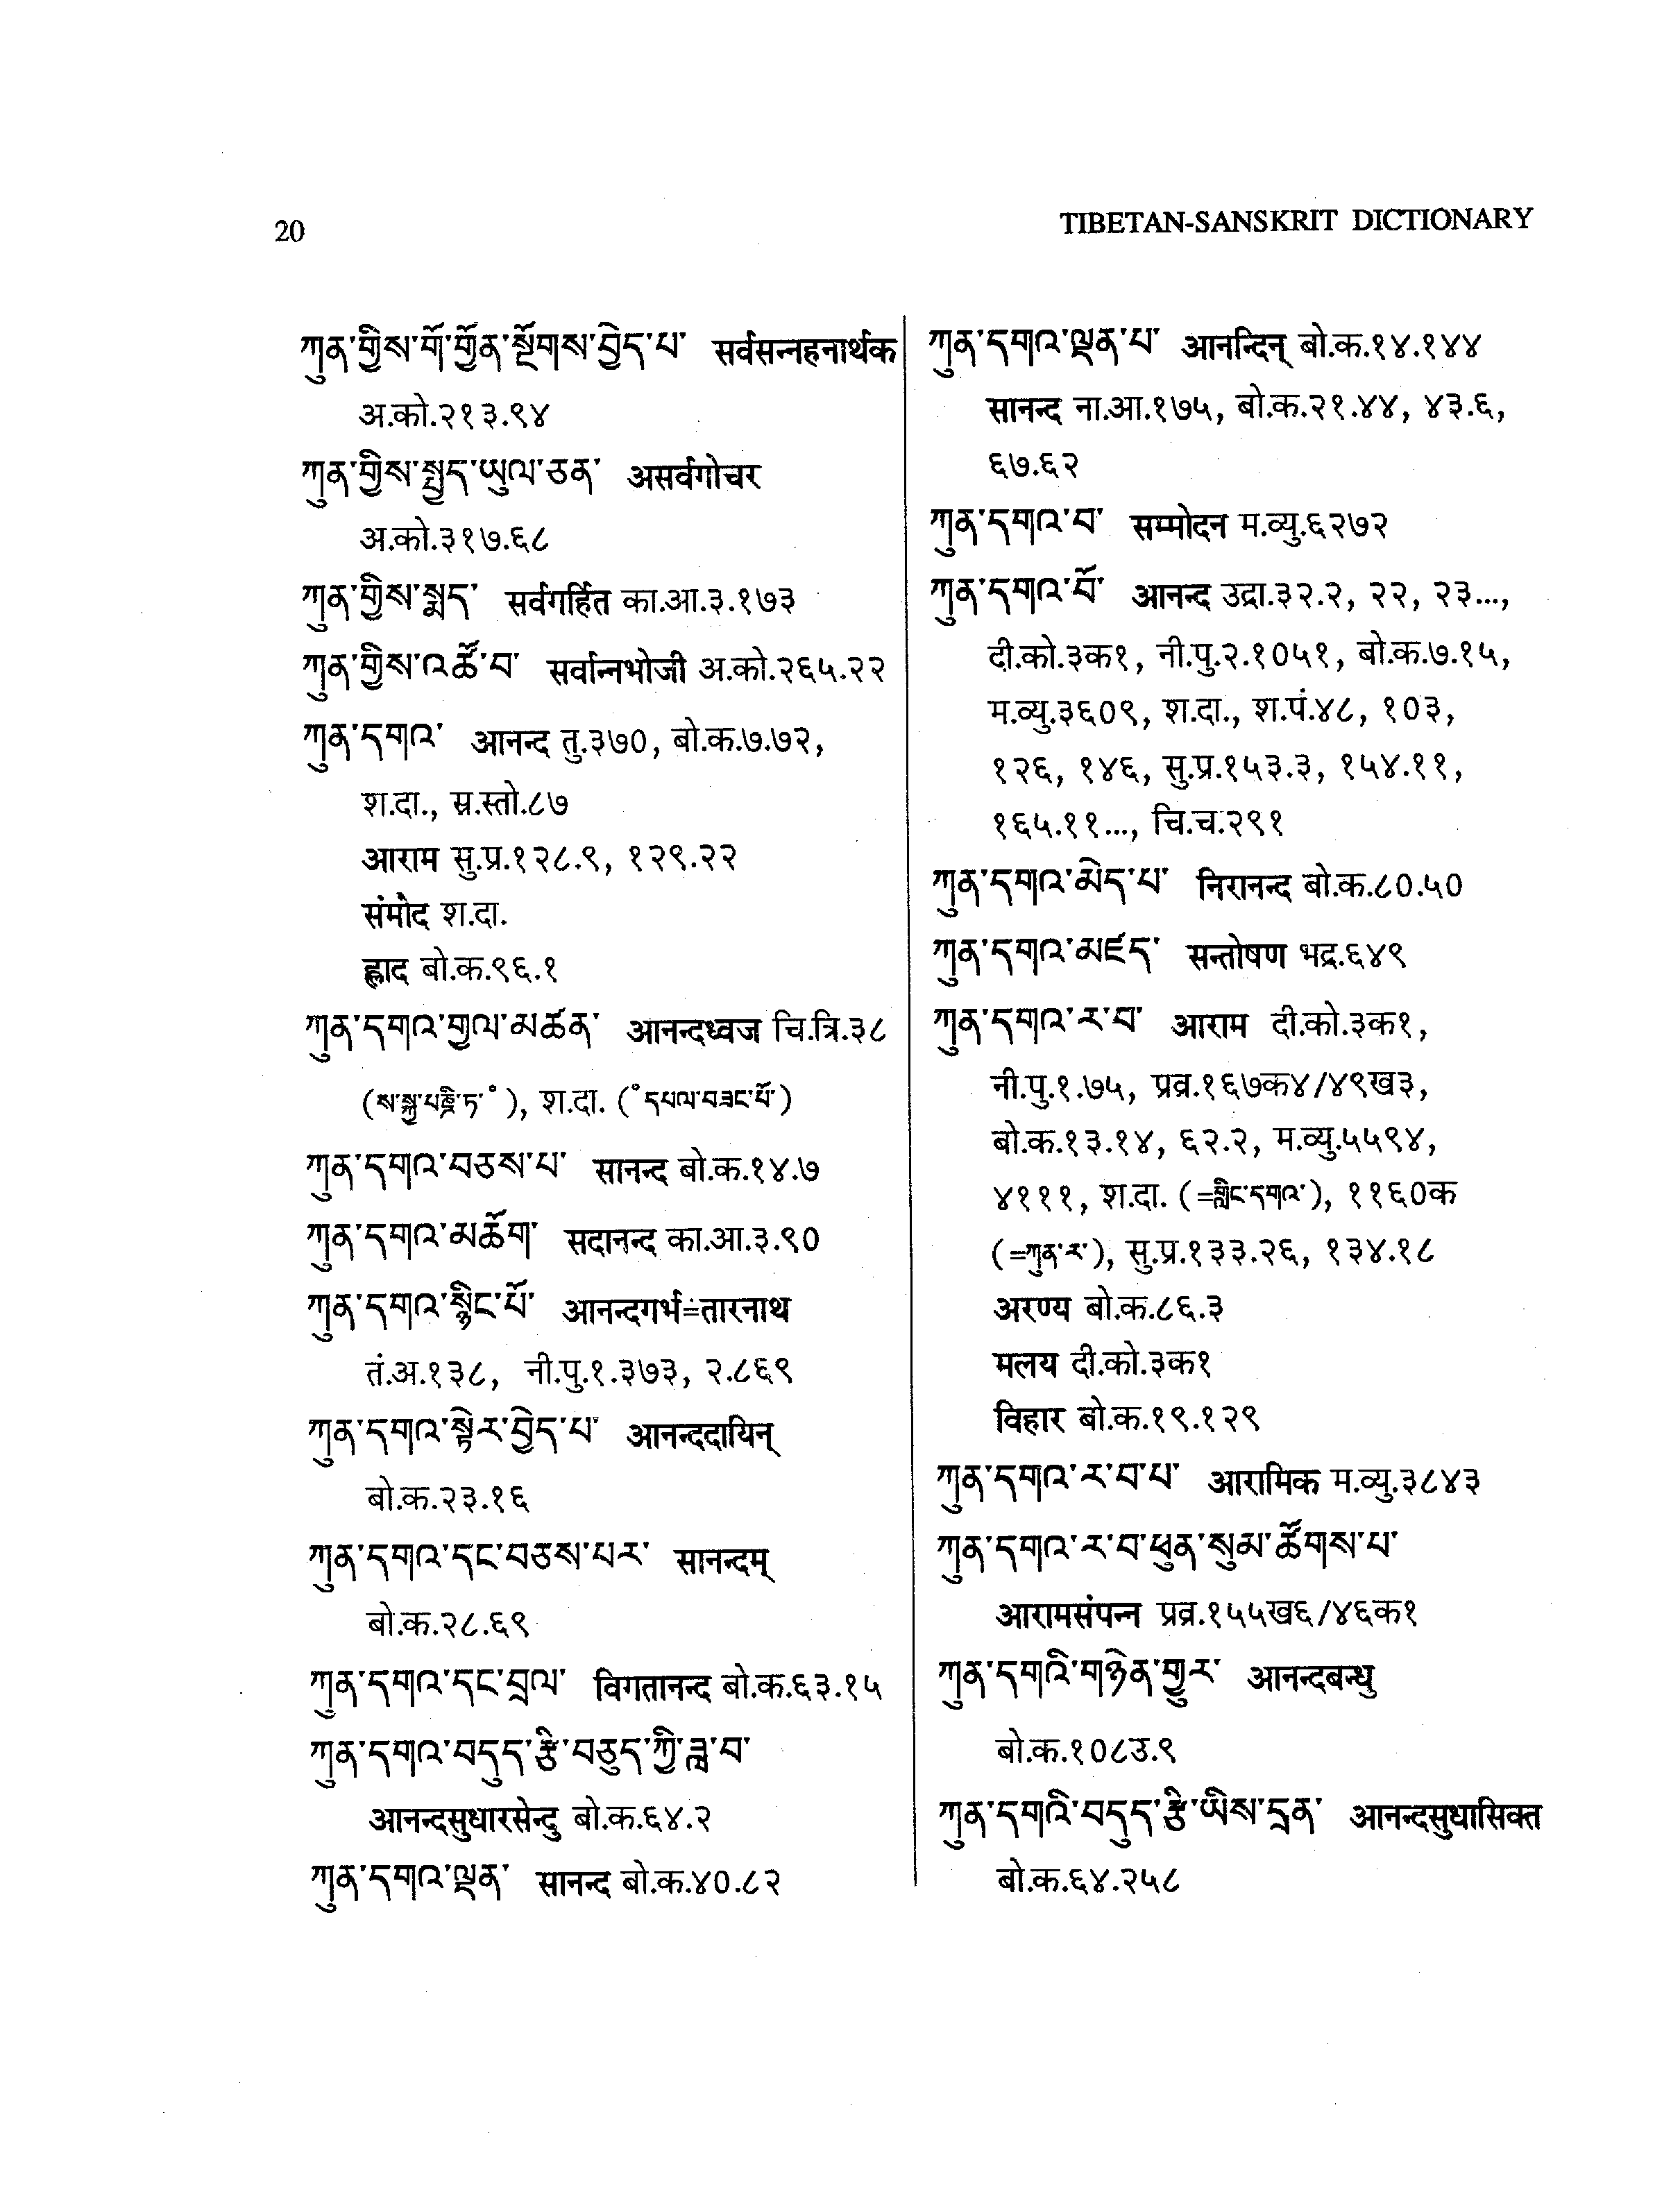 20
TIBETAN-SANSKRIT DICTIONARY
ཀུན་གྱིས་གོ་གྱོན་སྔོགས་བྱེད་པ་ सर्वसन्नहनार्थक
अ.को.२१३.९४
ཀུན་གྱིས་སྤྱད་ཡུལ་ཅན་ असर्वगोचर
अ.को.३१७.६८
ཀུན་གྱིས་སྨད་ सर्वगर्हित का.आ.३.१७३
ཀུན་གྱིས་འཚོ་བ་ सर्वान्नभोजी अ.को.२६५.२२
ཀུན་དགའ་ आनन्द तु.३७०, बो.क.७.७२,
श.दा., स्र.स्तो.८७
आराम सु.प्र.१२८.९, १२९.२२
संमोद श.दा.
ह्लाद बो.क.९६.१
ཀུན་དགའ་རྒྱལ་མཚན་ आनन्दध्वज चि.त्रि.३८
(ས་སྐྱ་པཎྜི་ཏ་˚), श.दा. (˚དཔལ་བཟང་པོ་)
ཀུན་དགའ་བཅས་པ་ सानन्द बो.क.१४.७
ཀུན་དགའ་མཆོག་ सदानन्द का.आ.३.९०
ཀུན་དགའ་སྙིང་པོ་ आनन्दगर्भ=तारनाथ
तं.अ.१३८, नी.पु.१.३७३, २.८६९
ཀུན་དགའ་སྟེར་བྱེད་པ་ आनन्ददायिन्
बो.क.२३.१६
ཀུན་དགའ་དང་བཅས་པར་ सानन्दम्
बो.क.२८.६९
ཀུན་དགའ་དང་བྲལ་ विगतानन्द बो.क.६३.१५
ཀུན་དགའ་བདུད་རྩི་བཅུད་ཀྱི་ཟླ་བ་
आनन्दसुधारसेन्दु बो.क.६४.२
ཀུན་དགའ་ལྡན་ सानन्द बो.क.४०.८२
ཀུན་དགའ་ལྡན་པ་ आनन्दिन् बो.क.१४.१४४
सानन्द ना.आ.१७५, बो.क.२१.४४, ४३.६,
६७.६२
ཀུན་དགའ་བ་ सम्मोदन म.व्यु.६२७२
ཀུན་དགའ་བོ་ आनन्द उद्रा.३२.२, २२, २३...,
दी.को.३क१, नी.पु.२.१०५१, बो.क.७.१५,
म.व्यु.३६०९, श.दा., श.पं.४८, १०३,
१२६, १४६, सु.प्र.१५३.३, १५४.११,
१६५.११..., चि.च.२९१
ཀུན་དགའ་མེད་པ་ निरानन्द बो.क.८०.५०
ཀུན་དགའ་མཛད་ सन्तोषण भद्र.६४९
ཀུན་དགའ་ར་བ་ आराम दी.को.३क१,
नी.पु.१.७५, प्रव्र.१६७क४/४९ख३,
बो.क.१३.१४, ६२.२, म.व्यु.५५९४,
४१११, श.दा. (=གླིང་དགའ་), ११६०क
(=ཀུན་ར་), सु.प्र.१३३.२६, १३४.१८
अरण्य बो.क.८६.३
मलय दी.को.३क१
विहार बो.क.१९.१२९
ཀུན་དགའ་ར་བ་པ་ आरामिक म.व्यु.३८४३
ཀུན་དགའ་ར་བ་ཕུན་སུམ་ཚོགས་པ་
आरामसंपन्न प्रव्र.१५५ख६/४६क१
ཀུན་དགའི་གཉེན་གྱུར་ आनन्दबन्धु
बो.क.१०८उ.९
ཀུན་དགའི་བདུད་རྩི་ཡིས་དྲན་ आनन्दसुधासिक्त
बो.क.६४.२५८